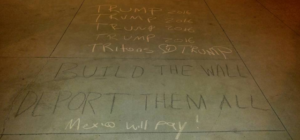 TRUMP 2016
TRUMP 2016
TRUMP 2016
TRUMP 2016
TRitons 4 TRUMP
BUILD THE WALL
DEPORT THEM ALL
Mexico will Pay!